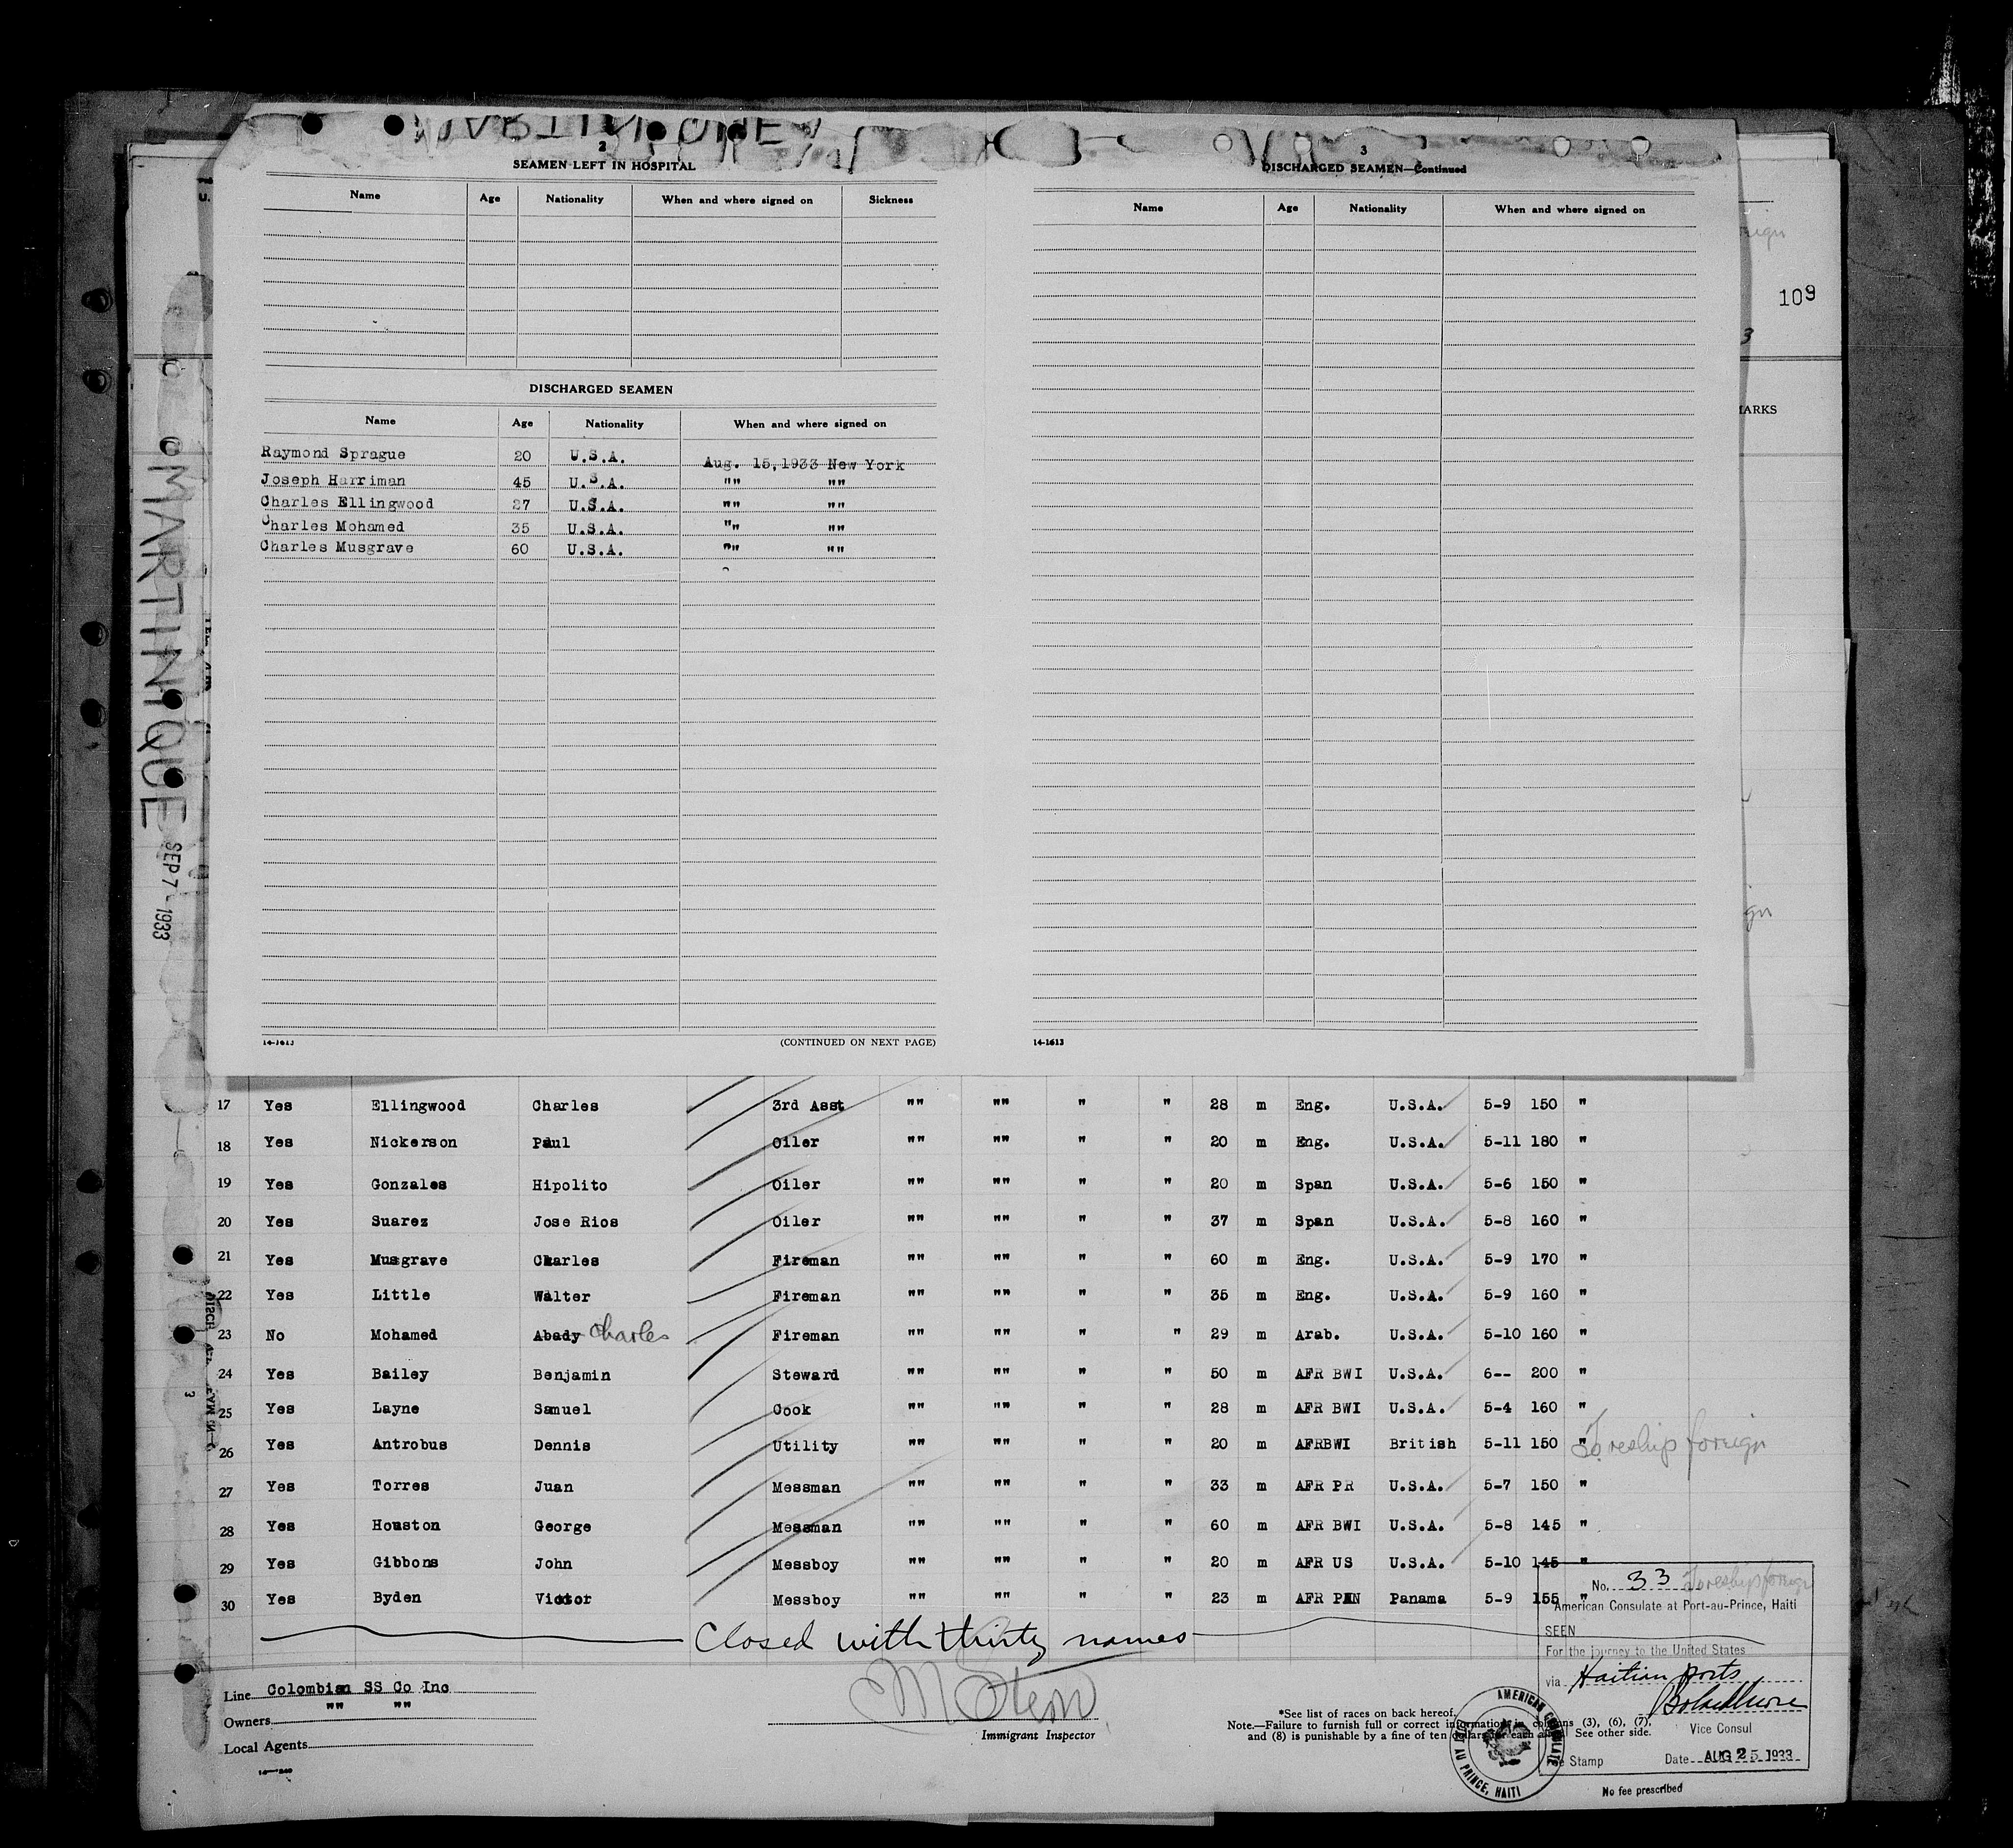 2
SEAMEN LEFT IN HOSPITAL
Name Age Nationality When and where signed on Sickness
DISCHARGED SEAMEN
Name Age Nationality When and where signed on
Raymond Sprague 20 U.S.A. Aug. 15,1933 New York
Joseph Harriman 45 U.S.A. "" ""
Charles Ellingwood 27 U.S.A. "" ""
Charles Mohamed 35 U.S.A. "" ""
Charles Musgrave 60 U.S.A. "" ""
14-1613 (CONTINUED ON NEXT PAGE)
3
DISCHARGED SEAMEN—Continued
Name Age Nationality When and where signed on
14-1613
109
3
MARTINQUE SEP 7 - 1933
17 Yes Ellingwood Charles 3rd Asst "" "" " " 28 m Eng. U.S.A. 5-9 150 "
18 Yes Nickerson Paul Oiler "" "" " " 20 m Eng. U.S.A. 5-11 180 "
19 Yes Gonzales Hipolito Oiler "" "" " " 20 m Span U.S.A. 5-6 150 "
20 Yes Suarez Jose Rios Oiler "" "" " " 37 m Span U.S.A. 5-8 160 "
21 Yes Musgrave Charles Fireman "" "" " " 60 m Eng. U.S.A. 5-9 170 "
22 Yes Little Walter Fireman "" "" " " 35 m Eng. U.S.A. 5-9 160 "
23 No Mohamed Abady Charles Fireman "" "" " " 29 m Arab. U.S.A. 5-10 160 "
24 Yes Bailey Benjamin Steward "" "" " " 50 m AFR BWI U.S.A. 6-- 200 "
25 Yes Layne Samuel Cook "" "" " " 28 m AFR BWI U.S.A. 5-4 160 "
26 Yes Antrobus Dennis Utility "" "" " " 20 m AFRBWI British 5-11 150 " To reship foreign
27 Yes Torres Juan Messman "" "" " " 33 m AFR PR U.S.A. 5-7 150 "
28 Yes Houston George Messman "" "" " " 60 m AFR BWI U.S.A. 5-8 145 "
29 Yes Gibbons John Messboy "" "" " " 20 m AFR US U.S.A. 5-10 145 "
30 Yes Byden Victor Messboy "" "" " " 23 m AFR PAN Panama 5-9 155 " To reship foreign
Closed with thirty names
Line Colombian SS Co Inc
Owners "" ""
Local Agents
Immigrant Inspector
*See list of races on back hereof.
Note.—Failure to furnish full or correct information in columns (3), (6), (7),
and (8) is punishable by a fine of ten dollars for each alien. See other side.
No. 33
American Consulate at Port-au-Prince, Haiti
SEEN
For the journey to the United States
via Haitian ports
Vice Consul
Fee Stamp Date AUG 25 1933
No fee prescribed
AMERICAN CONSULATE
PORT AU PRINCE, HAITI